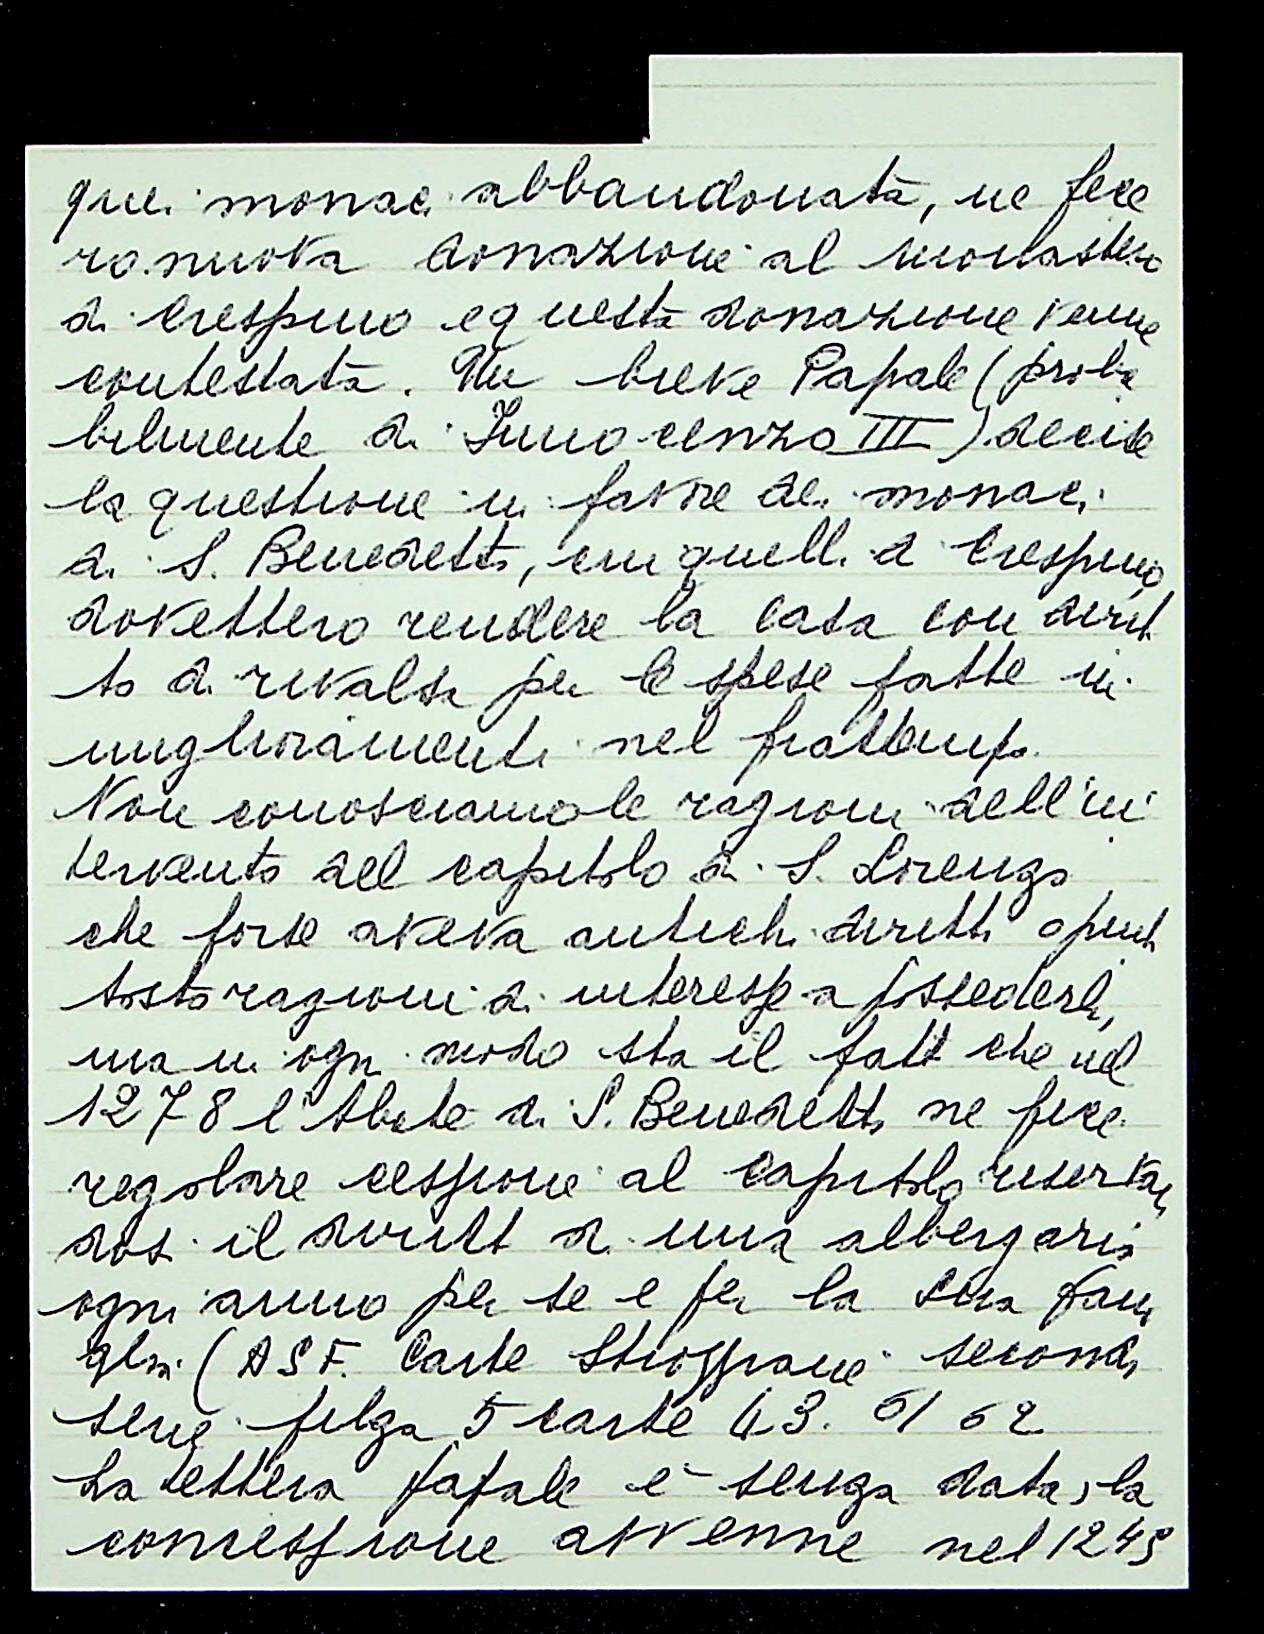 quei monaci abbandonata, ne fece
ro nuova donazione al monastero
di Crespino e questa donazione venne
contestata. Un breve Papale (proba
bilmente di Innocenzo III) decise
la questione in favore dei monaci
di S. Benedetto, cui quelli di Crespino
dovettero rendere la casa con dirit
to di rivalsa per le spese fatte in
miglioramenti nel frattempo.
Non conosciamo le ragioni dell'in
tervento del capitolo di S. Lorenzo
che forse aveva antichi diritti o piut
tosto ragioni di interesse a possederli,
ma in ogni modo sta il fatto che nel
1278 l'Abate di S. Benedetto ne fece
regolare cessione al Capitolo riservan
dosi il diritto di una albergaria
ogni anno per se e per la sua fami
glia (ASF. Carte Strozziane seconda
serie filza 5 carte 43. 61 62
La lettera papale è senza data, la
concessione avvenne nel 1245